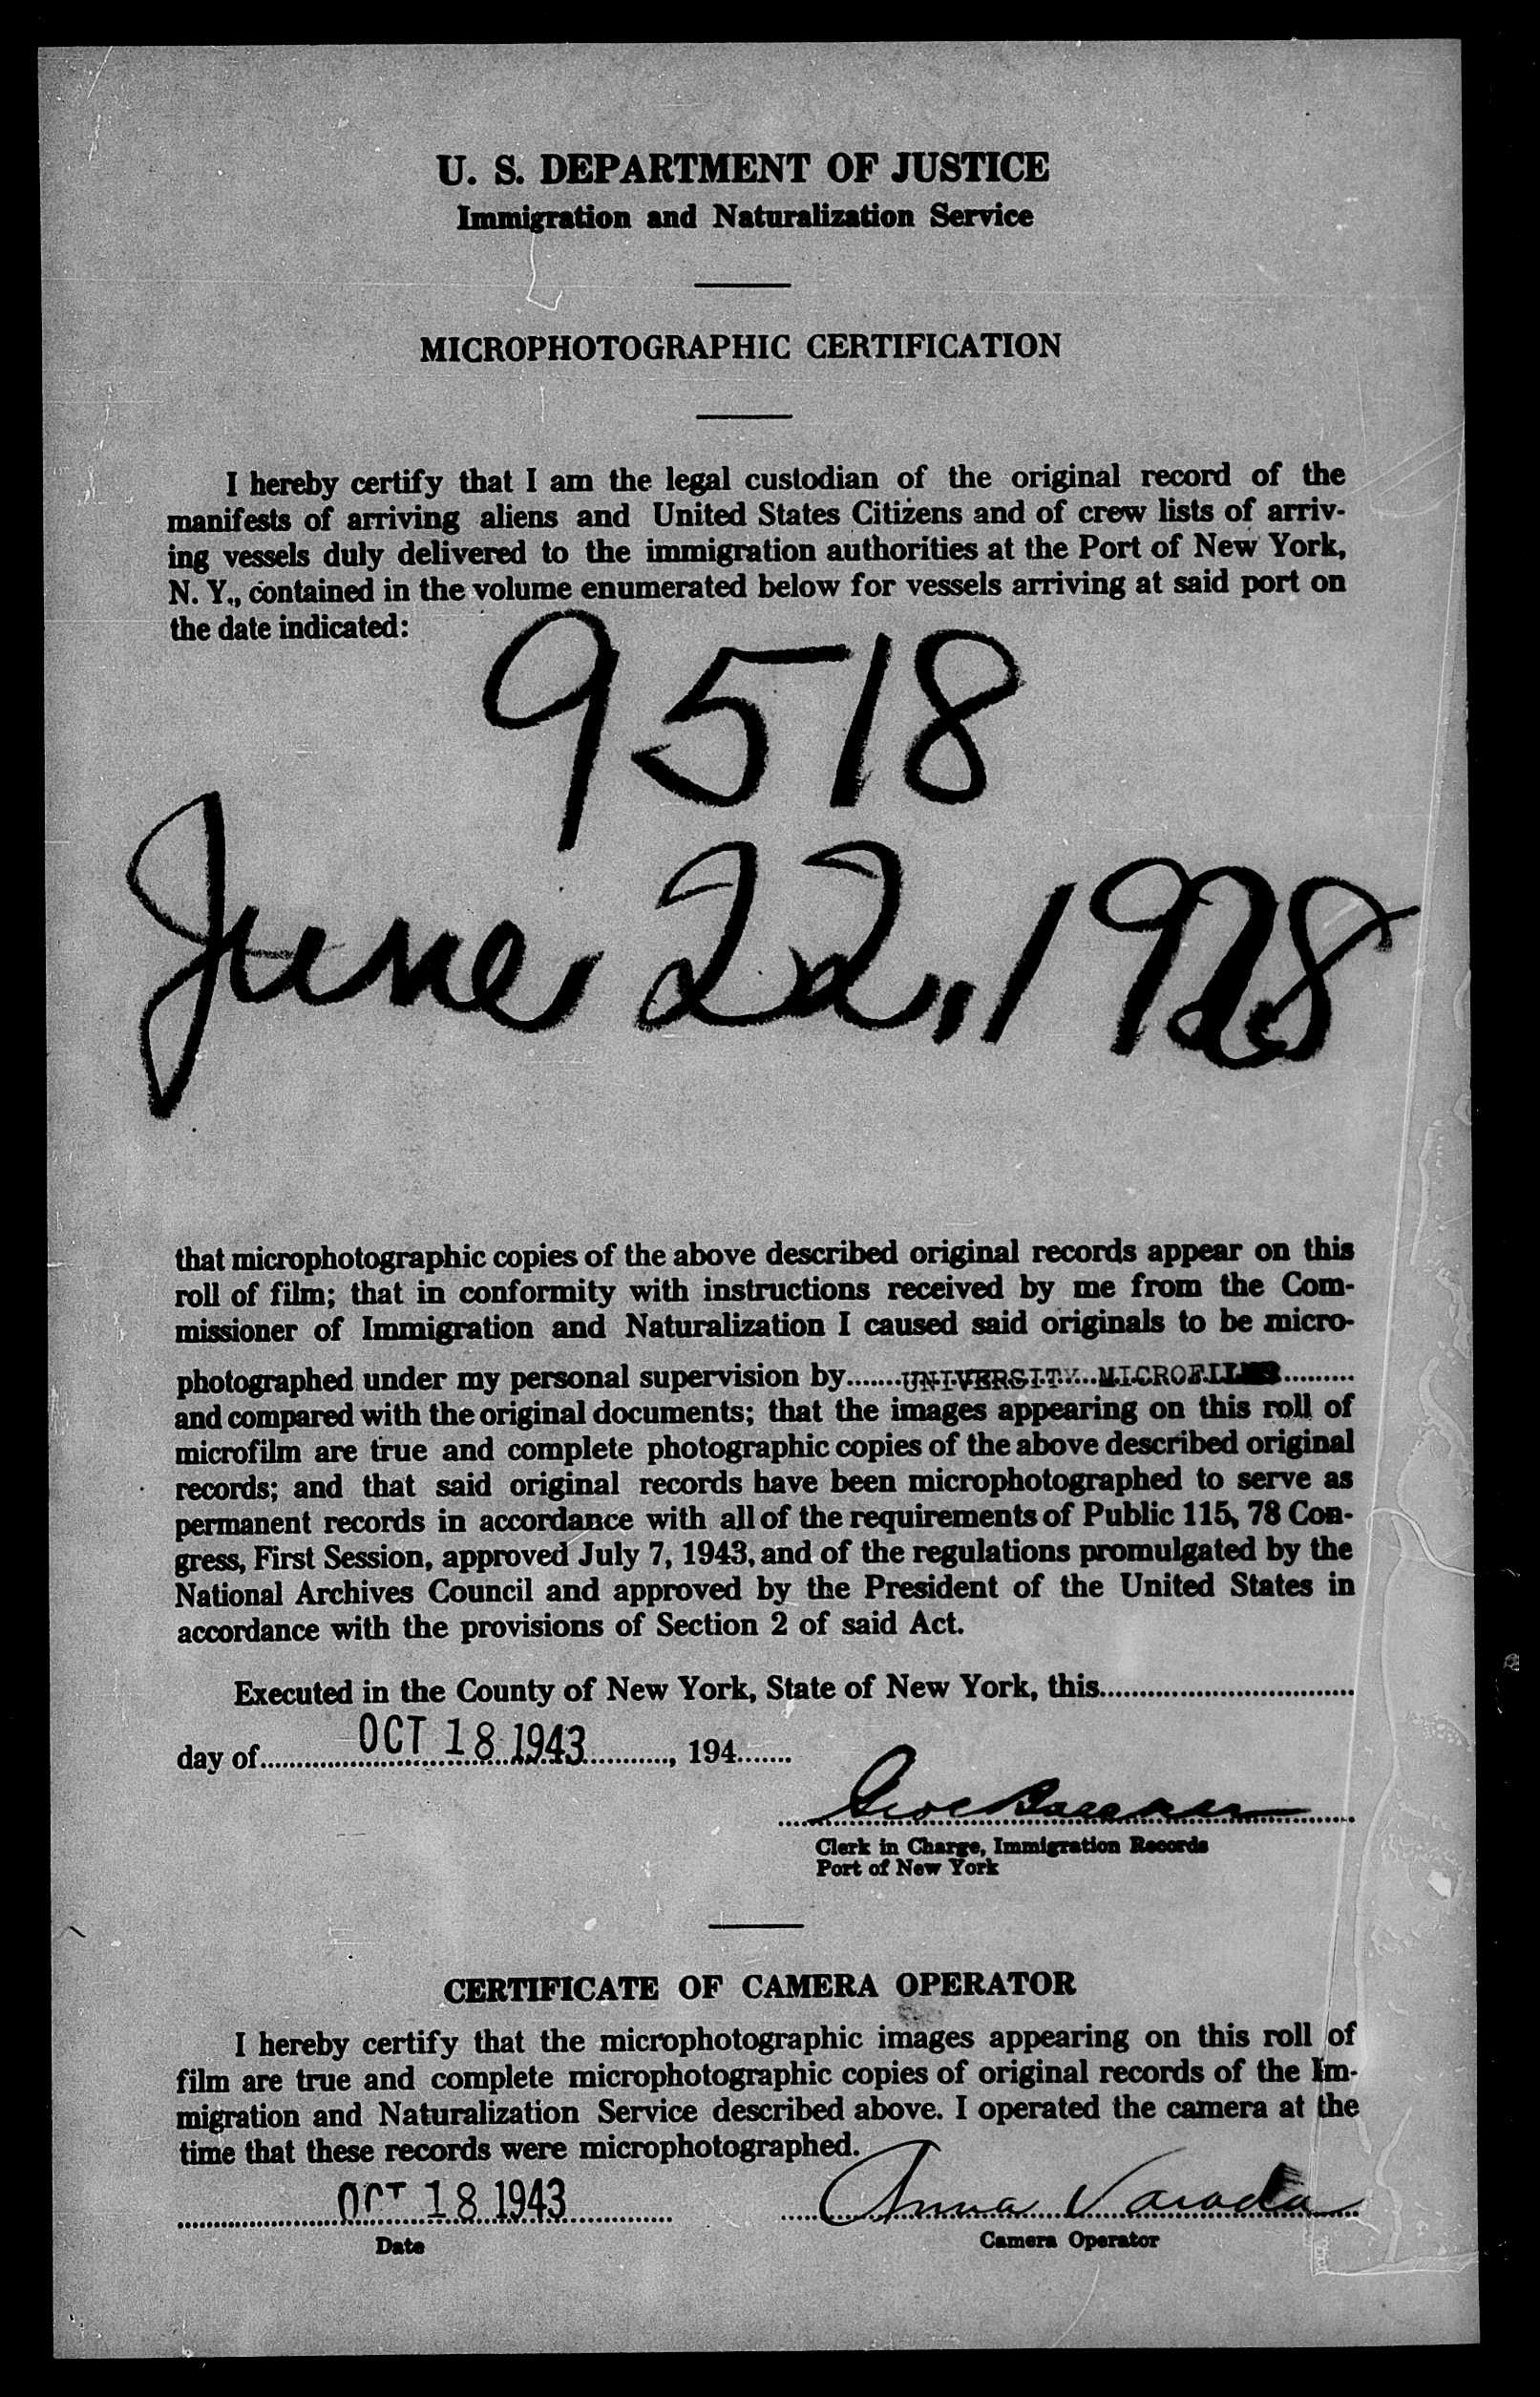 U. S. DEPARTMENT OF JUSTICE
Immigration and Naturalization Service
MICROPHOTOGRAPHIC CERTIFICATION
I hereby certify that I am the legal custodian of the original record of the
manifests of arriving aliens and United States Citizens and of crew lists of arriv-
ing vessels duly delivered to the immigration authorities at the Port of New York,
N. Y., contained in the volume enumerated below for vessels arriving at said port on
the date indicated:
9518
June 22, 1928
that microphotographic copies of the above described original records appear on this
roll of film; that in conformity with instructions received by me from the Com-
missioner of Immigration and Naturalization I caused said originals to be micro-
photographed under my personal supervision by.......UNIVERSITY MICROFILMS.........
and compared with the original documents; that the images appearing on this roll of
microfilm are true and complete photographic copies of the above described original
records; and that said original records have been microphotographed to serve as
permanent records in accordance with all of the requirements of Public 115, 78 Con-
gress, First Session, approved July 7, 1943, and of the regulations promulgated by the
National Archives Council and approved by the President of the United States in
accordance with the provisions of Section 2 of said Act.
Executed in the County of New York, State of New York, this................................
day of............OCT 18 1943..........., 194.......
Clerk in Charge, Immigration Records
Port of New York
CERTIFICATE OF CAMERA OPERATOR
I hereby certify that the microphotographic images appearing on this roll of
film are true and complete microphotographic copies of original records of the Im-
migration and Naturalization Service described above. I operated the camera at the
time that these records were microphotographed.
OCT 18 1943 Anna
Date Camera Operator